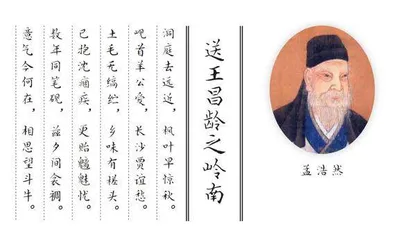 送王昌龄之岭南
孟浩然
洞庭去远近,枫叶早惊秋。
岘首羊公爱,长沙贾谊愁。
土毛无缟纻,乡味有槎头。
已抱沈痼疾,更贻魑魅忧。
数年同笔砚,兹夕间衾裯。
意气今何在,相思望斗牛。